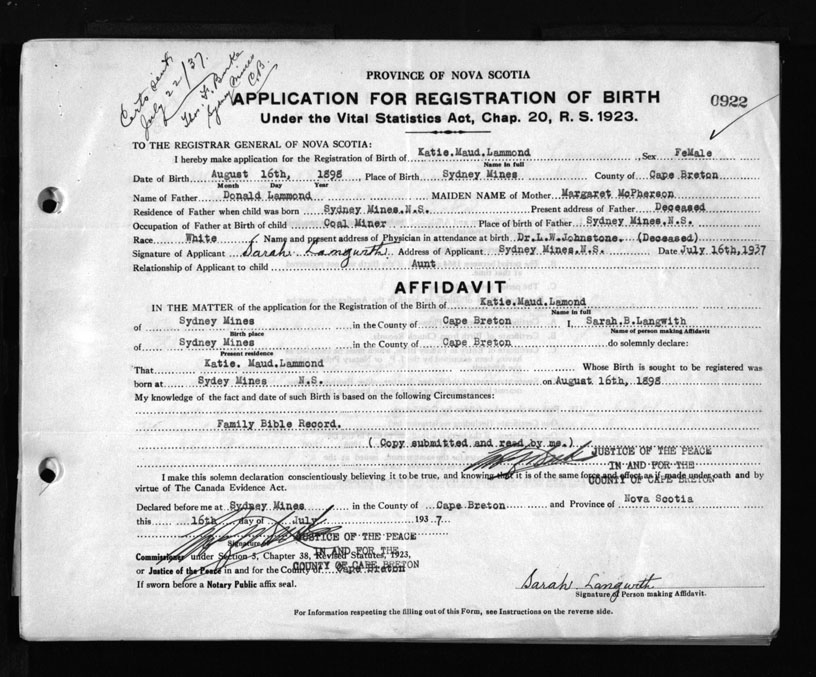 Certs sent
July 22/37.
Thos. F. Burke
Sydney Mines
C.B.
PROVINCE OF NOVA SCOTIA
APPLICATION FOR REGISTRATION OF BIRTH
0922
Under the Vital Statistics Act, Chap. 20, R. S. 1923.
TO THE REGISTRAR GENERAL OF NOVA SCOTIA:
I hereby make application for the Registration of Birth of Katie.Maud.Lammond, Sex FeMale
Name in full
Date of Birth August 16th, 1898 Place of Birth Sydney Mines County of Cape Breton
Month Day Year
Name of Father Donald Lammond MAIDEN NAME of Mother Margaret McPherson
Residence of Father when child was born Sydney Mines.N.S. Present address of Father Deceased
Occupation of Father at Birth of child Coal Miner Place of birth of Father Sydney Mines.N.S.
Race White Name and present address of Physician in attendance at birth Dr.L.W.Johnstone. (Deceased)
Signature of Applicant Sarah Langwith Address of Applicant Sydney Mines.N.S. Date July 16th,1937
Relationship of Applicant to child Aunt
AFFIDAVIT
IN THE MATTER of the application for the Registration of the Birth of Katie.Maud.Lamond
Name in full
of Sydney Mines in the County of Cape Breton I, Sarah.B.Langwith
Birth place Name of person making Affidavit
of Sydney Mines in the County of Cape Breton do solemnly declare:
Present residence
That Katie. Maud.Lammond Whose Birth is sought to be registered was
born at Sydey Mines N.S. on August 16th, 1898
My knowledge of the fact and date of such Birth is based on the following Circumstances:
Family Bible Record.
( Copy submitted and read by me.)
JUSTICE OF THE PEACE
IN AND FOR THE
COUNTY OF CAPE BRETON
I make this solemn declaration conscientiously believing it to be true, and knowing that it is of the same force and effect as if made under oath and by
virtue of The Canada Evidence Act.
Declared before me at Sydney Mines in the County of Cape Breton and Province of Nova Scotia
this 16th day of July 1937
Signature
JUSTICE OF THE PEACE
IN AND FOR THE
COUNTY OF CAPE BRETON
Commissioner under Section 3, Chapter 38, Revised Statutes, 1923,
or Justice of the Peace in and for the County of Cape Breton
If sworn before a Notary Public affix seal.
Sarah Langwith
Signature of Person making Affidavit.
For Information respecting the filling out of this Form, see Instructions on the reverse side.